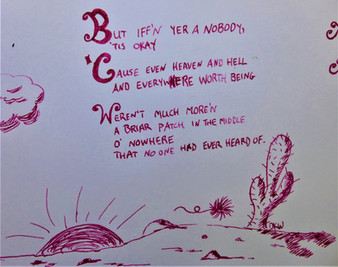 BUT IFF'N YER A NOBODY,
'TIS OKAY
'CAUSE EVEN HEAVEN AND HELL
AND EVERYWHERE WORTH BEING
WEREN'T MUCH MORE'N
A BRIAR PATCH IN THE MIDDLE
O' NOWHERE
THAT NO ONE HAD EVER HEARD OF.